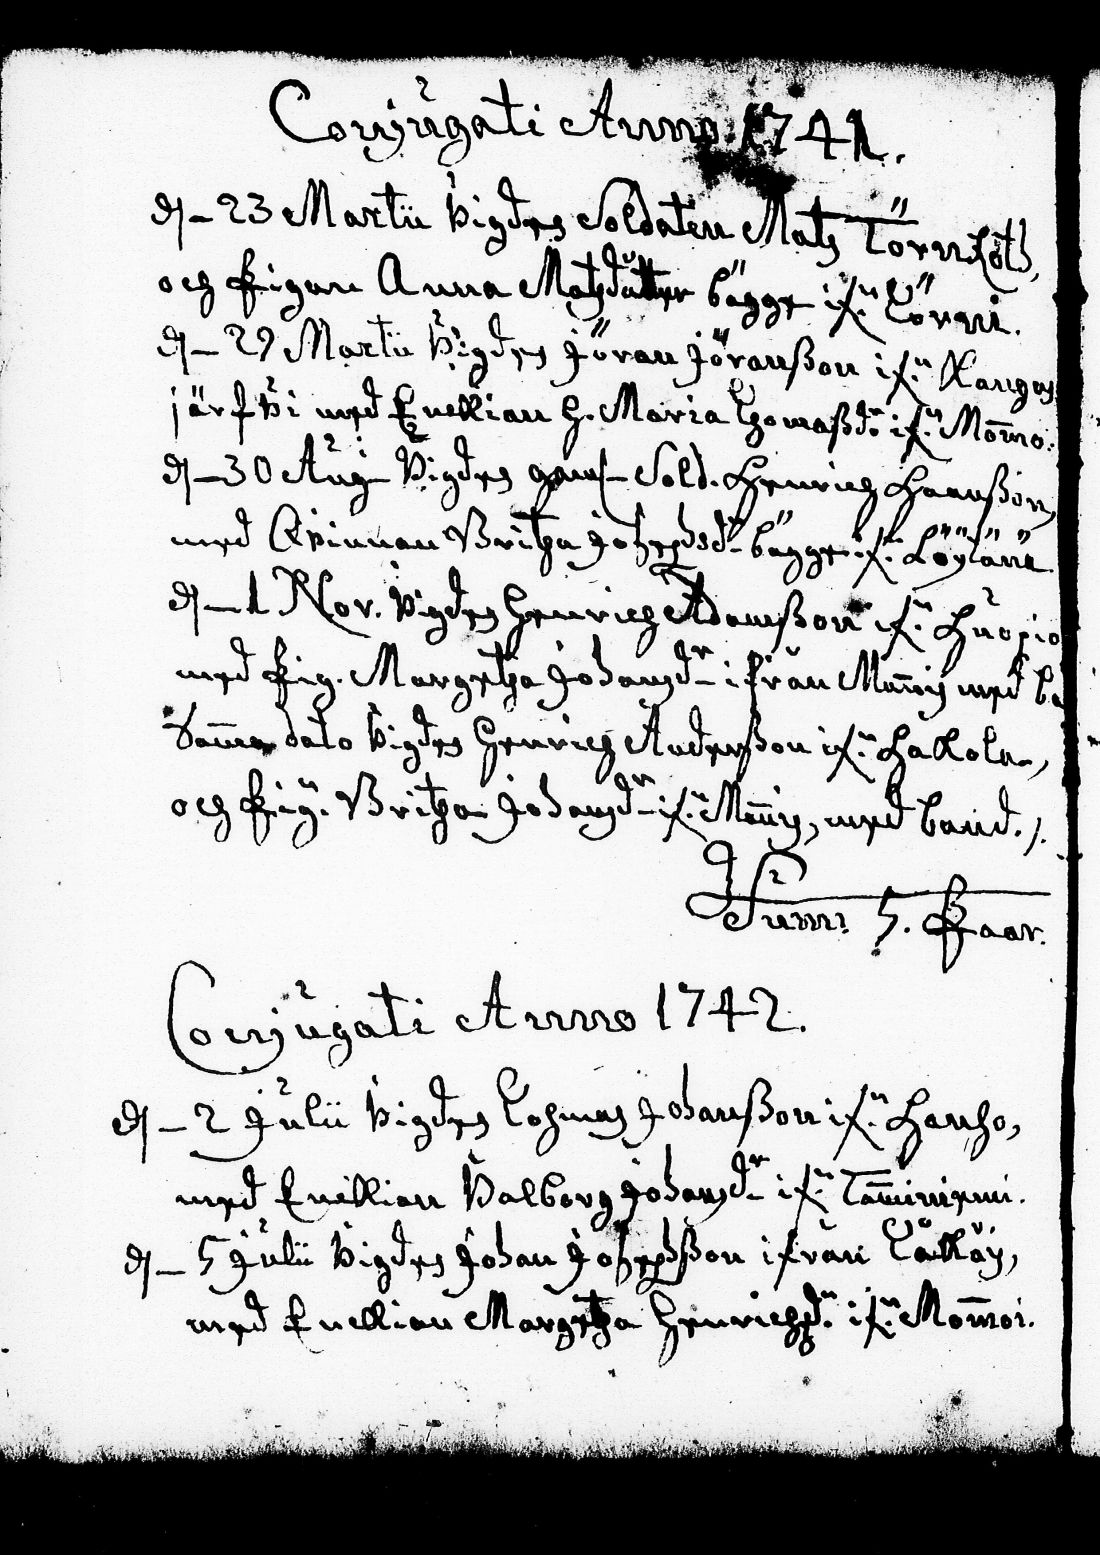 Conjugati Anno 1741.
d. 23 Martii Wigdes Soldaten Mats Törnroth,
och Pigan Anna Matsdotter bägge ifrn Törni.
d. 29 Martii Wigdes Jöran Jöransson ifrn Kangas
järfwi med Enckian H. Maria Thomasdr. ifrn Mom̄o.
d. 30 Aug Wigdes Sold. Henrich Hansson,
med Qwinnan Britha Josephsdr bägge ifrn Löylänä
d. 1 Nov. Wigdes Henrich Adamsson ifrn Huopio
med Pig. Margetha Johansdr ifrån Man̄ij med ba
Sam̄a dato Wigdes Henrich Andersson ifrn Hakkola,
och Pig. Britha Johansdr ifrn Man̄ij, med band.
Sum: 5. Paar.
Conjugati Anno 1742.
d. 2 Julii Wigdes Tohmas Johansson ifrn Hanho,
med Enckian Walborg Johansdr ifrn Tam̄iniemi.
d. 5 Julii Wigdes Johan Josephsson ifrån
med Enckian Margetha Henrichsdr. ifrn Mom̄oi.